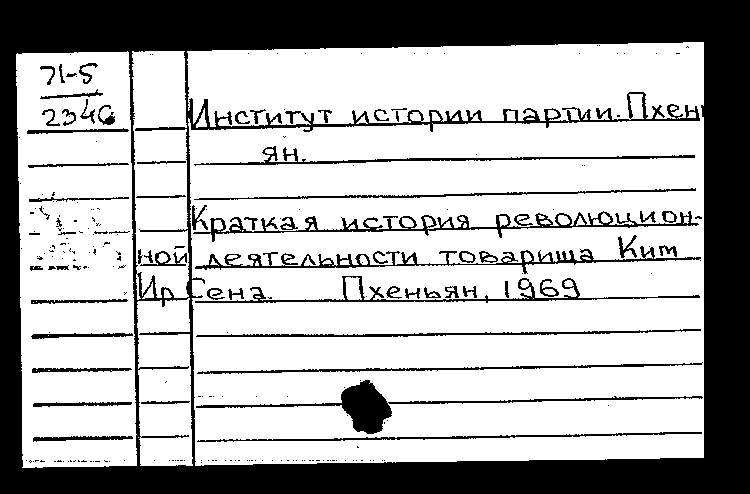 71-5
2346
Институт истории партии. Пхень
ян.
Краткая история революцион-
ной деятельности товарища Ким
Ир Сена. Пхеньян, 1969